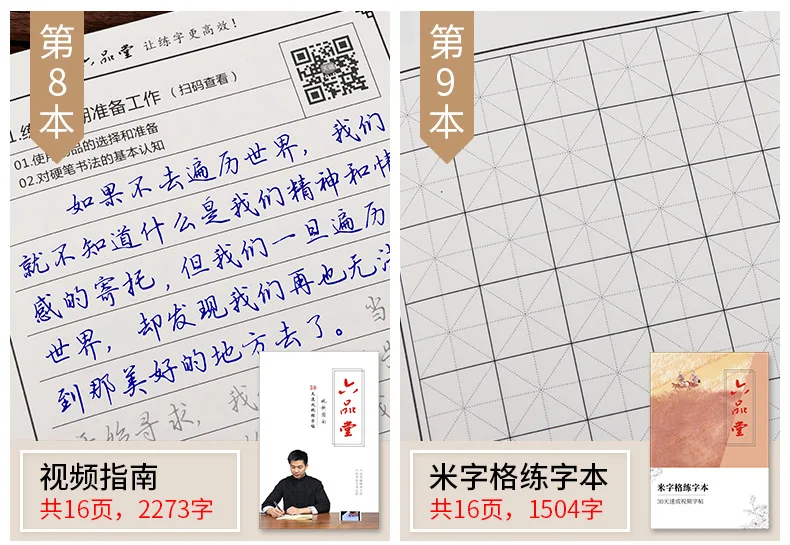 第
8
本
六品堂 让练字更高效！
期准备工作（扫码查看）
01.使用
品的选择和准备
02.对硬笔书法的基本认知
如果不去遍历世界，我们
就不知道什么是我们精神和情
感的寄托，但我们一旦遍历
世界，却发现我们再也无法
到那美好的地方去了。
当
寻求，我
六品堂
视频指南
共16页，2273字
第
9
本
六品堂
米字格练字本
30天速成视频字帖
米字格练字本
共16页，1504字